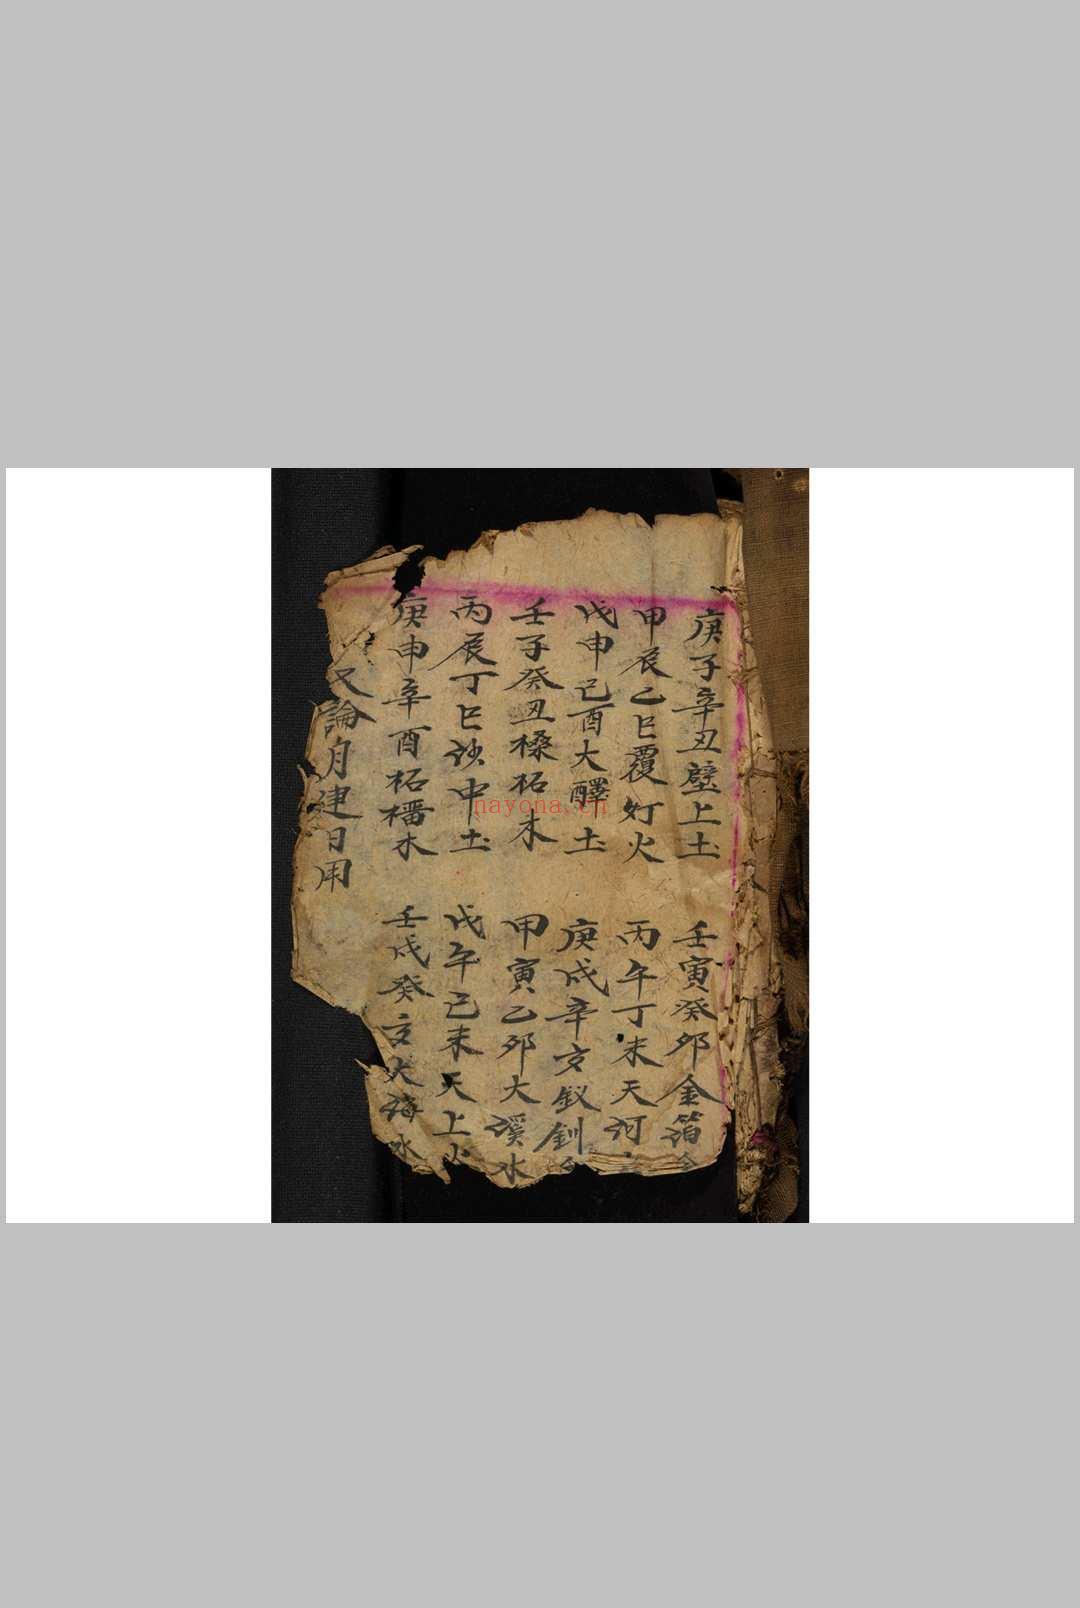 庚子辛丑壁上土
壬寅癸卯金箔
甲辰乙巳覆灯火
丙午丁未天河
戊申己酉大驛土
庚戌辛亥釵釧
壬子癸丑桑柘木
甲寅乙卯大溪水
丙辰丁巳沙中土
戊午己未天上火
庚申辛酉柘榴木
壬戌癸亥大海水
又論月建日用
nayona.cn